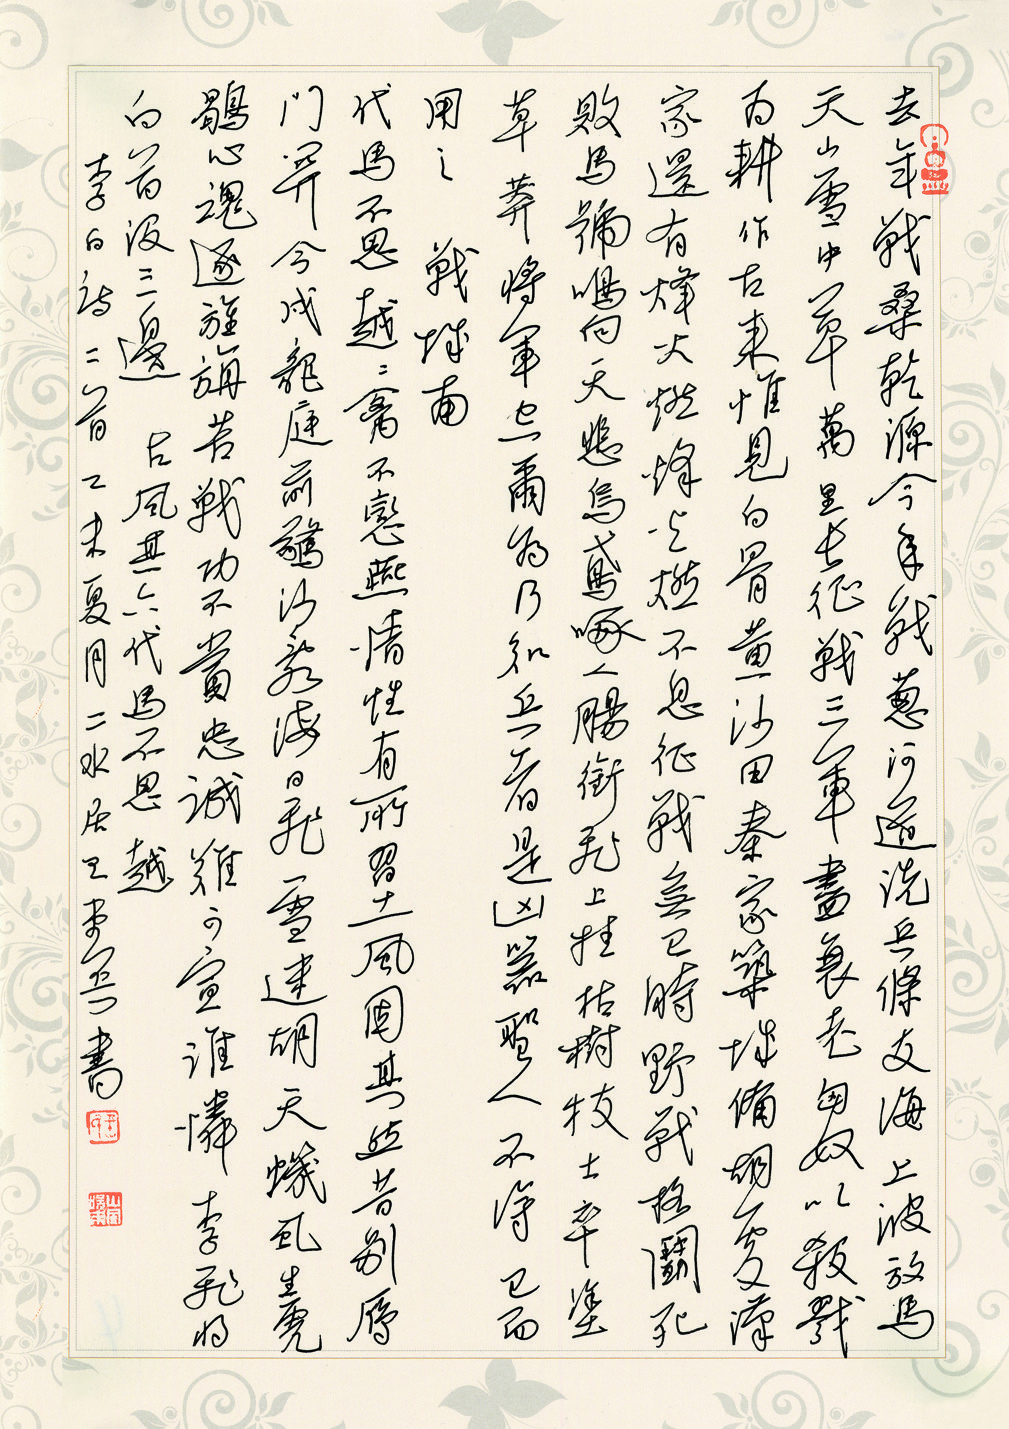 去年戰桑乾源今年戰蔥河道洗兵條支海上波放馬
天山雪中草萬里長征戰三軍盡衰老匈奴以殺戮
為耕作古來惟見白骨黃沙田秦家築城備胡處漢
家還有烽火燃烽火燃不息征戰無已時野戰格鬪死
敗馬號鳴向天悲烏鳶啄人腸銜飛上挂枯樹枝士卒塗
草莽將軍空爾為乃知兵者是凶器聖人不得已而
用之 戰城南
代馬不思越越禽不戀燕情性有所習土風固其然昔別雁
門關今戍龍庭前驚沙亂海日飛雪迷胡天蟣虱生虎
鶡心魂逐旌旃苦戰功不賞忠誠難可宣誰憐李飛將
白首沒三邊 古風其六代馬不思越
李白詩二首乙未夏月二水居王書